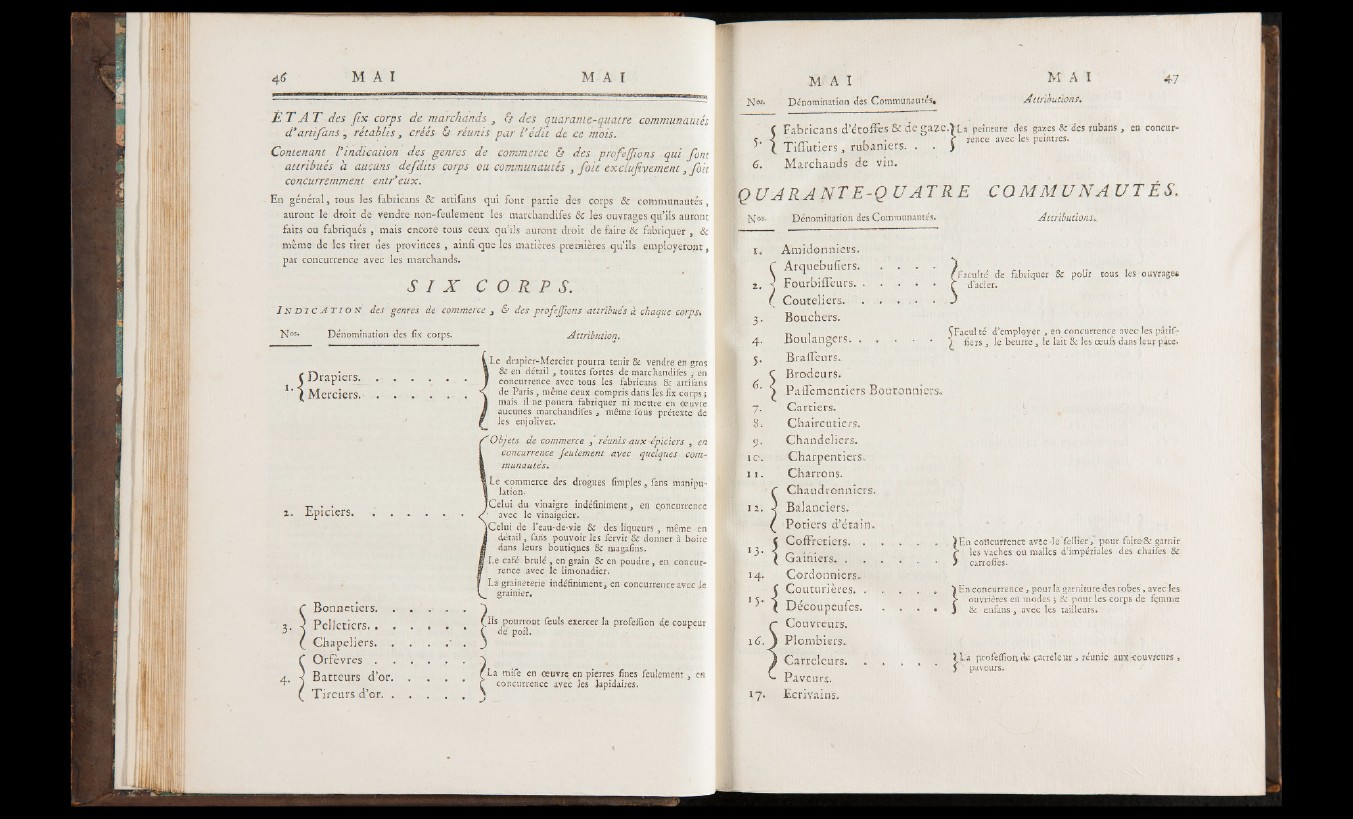 46 MAI MAI
ÉTAT des ſix corps de marchands, & des quarante-quatre communautés
d'artiſans, rétablis, créés & réunis par l'édit de ce mois.
Contenant l'indication des genres de commerce & des profeſſions qui ſont
attribués à aucuns deſdits corps ou communautés, ſoit excluſivement, ſoit
concurremment entr'eux.
En général, tous les fabricans & artiſans qui font partie des corps & communautés,
auront le droit de vendre non-ſeulement les marchandiſes & les ouvrages qu'ils auront
faits ou fabriqués, mais encore tous ceux qu'ils auront droit de faire & fabriquer, &
même de les tirer des provinces, ainſi que les matières premières qu'ils employeront,
par concurrence avec les marchands.
SIX CORPS.
INDICATION des genres de commerce, & des profeſſions attribués à chaque corps.
Nos. Dénomination des ſix corps. Attribution.
1. { Drapiers. . . . . . .
Merciers. . . . . . .
Le drapier-Mercier pourra tenir & vendre en gros
& en détail, toutes ſortes de marchandiſes, en
concurrence avec tous les fabricans & artiſans
de Paris, même ceux compris dans les ſix corps;
mais il ne pourra fabriquer ni mettre en œuvre
aucunes marchandiſes, même ſous prétexte de
les enjoliver.
2. Epiciers. . . . . . .
Objets de commerce, réunis aux épiciers, en
concurrence ſeulement avec quelques com-
munautés.
Le commerce des drogues ſimples, ſans manipu-
lation.
Celui du vinaigre indéfiniment, en concurrence
avec le vinaigrier.
Celui de l'eau-de-vie & des liqueurs, même en
détail, ſans pouvoir les ſervir & donner à boire
dans leurs boutiques & magaſins.
Le café brulé, en grain & en poudre, en concur-
rence avec le limonadier.
La graineterie indéfiniment, en concurrence avec le
grainier.
3. { Bonnetiers. . . . . .
Pelletiers. . . . . . .
Chapeliers. . . . . .
Ils pourront ſeuls exercer la profeſſion de coupeur
de poil.
4. { Orfèvres . . . . . .
Batteurs d'or. . . . .
Tireurs d'or. . . . . .
La miſe en œuvre en pierres fines ſeulement, en
concurrence avec les lapidaires.
MAI MAI 47
Nos. Dénomination des Communautés. Attributions.
5. { Fabricans d'étoffes & de gaze.
Tiſſutiers, rubaniers. . .
La peinture des gazes & des rubans, en concur-
rence avec les peintres.
6. Marchands de vin.
QUARANTE-QUATRE COMMUNAUTÉS.
Nos. Dénomination des Communautés. Attributions.
1. Amidonniers.
2. { Arquebuſiers. . . . .
Fourbiſſeurs. . . . . .
Couteliers. . . . . . .
Faculté de fabriquer & polir tous les ouvrages
d'acier.
3. Bouchers.
4. Boulangers. . . . . .
Faculté d'employer, en concurrence avec les pâtiſ-
ſiers, le beurre, le lait & les œufs dans leur pâte.
5. Braſſeurs.
6. { Brodeurs.
Paſſementiers Boutonniers.
7. Cartiers.
8. Chaircutiers.
9. Chandeliers.
10. Charpentiers.
11. Charrons.
12. { Chaudronniers.
Balanciers.
Potiers d'étain.
13. { Coffretiers. . . . . .
Gainiers. . . . . . .
En concurrence avec le ſellier, pour faire & garnir
les vaches ou malles d'impériales des chaiſes &
carroſſes.
14. Cordonniers.
15. { Couturières. . . . . .
Découpeuſes. . . . .
En concurrence, pour la garniture des robes, avec les
ouvrières en modes; & pour les corps de femme
& enfans, avec les tailleurs.
16. { Couvreurs.
Plombiers.
Carreleurs. . . . . .
Paveurs.
La profeſſion de carreleur, réunie aux couvreurs,
paveurs.
17. Ecrivains.